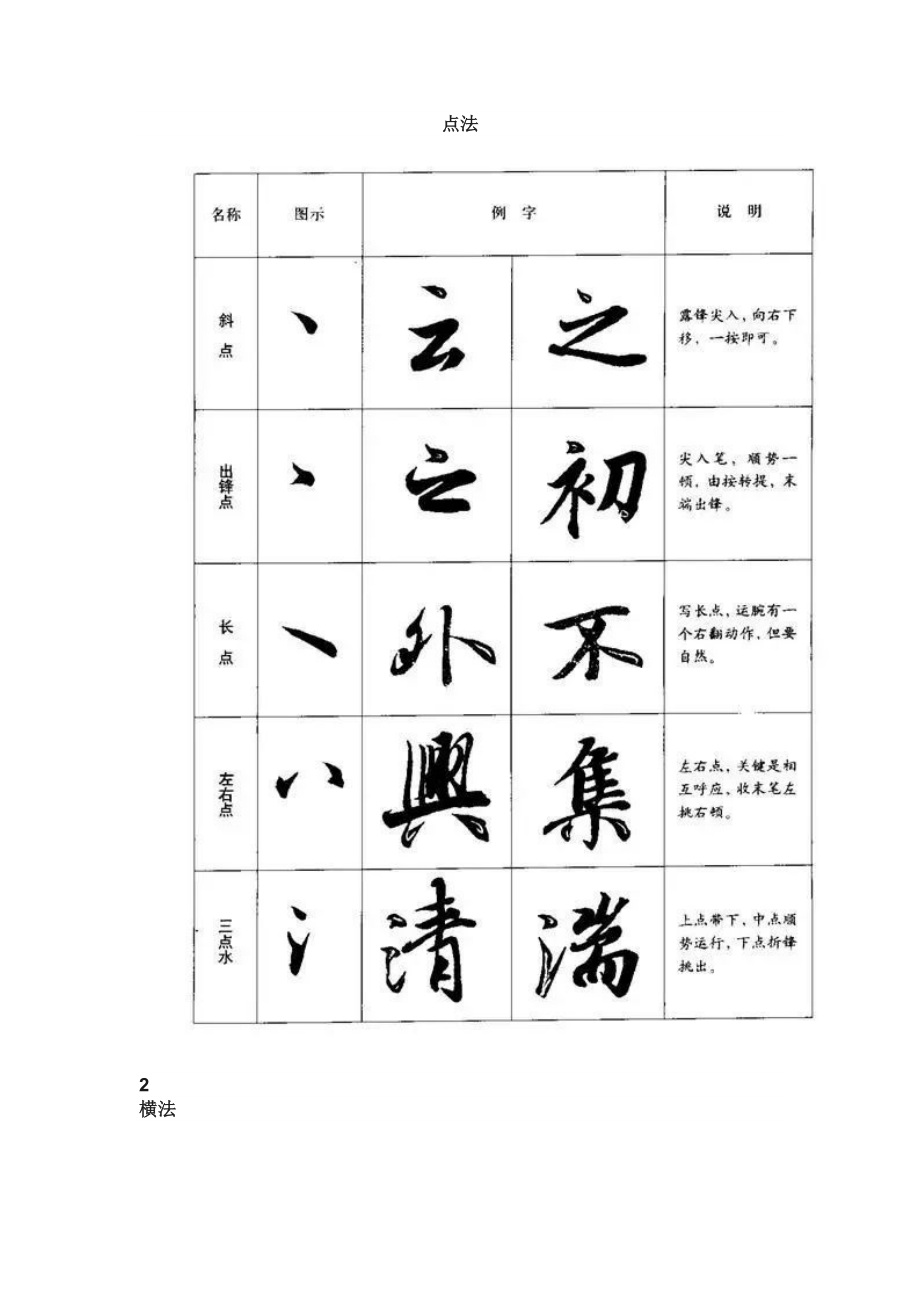 点法
名称 图示 例字 说明
斜点 丶 云 之 露锋尖入，向右下
移，一按即可。
出锋点 丶 之 初 尖入笔，顺势一
顿，由按转提，末
端出锋。
长点 丶 外 不 写长点，运腕有一
个右翻动作，但要
自然。
左右点 八 興 集 左右点，关键是相
互呼应，收末笔左
挑右顿。
三点水 氵 清 湍 上点带下，中点顺
势运行，下点折锋
挑出。
2
横法